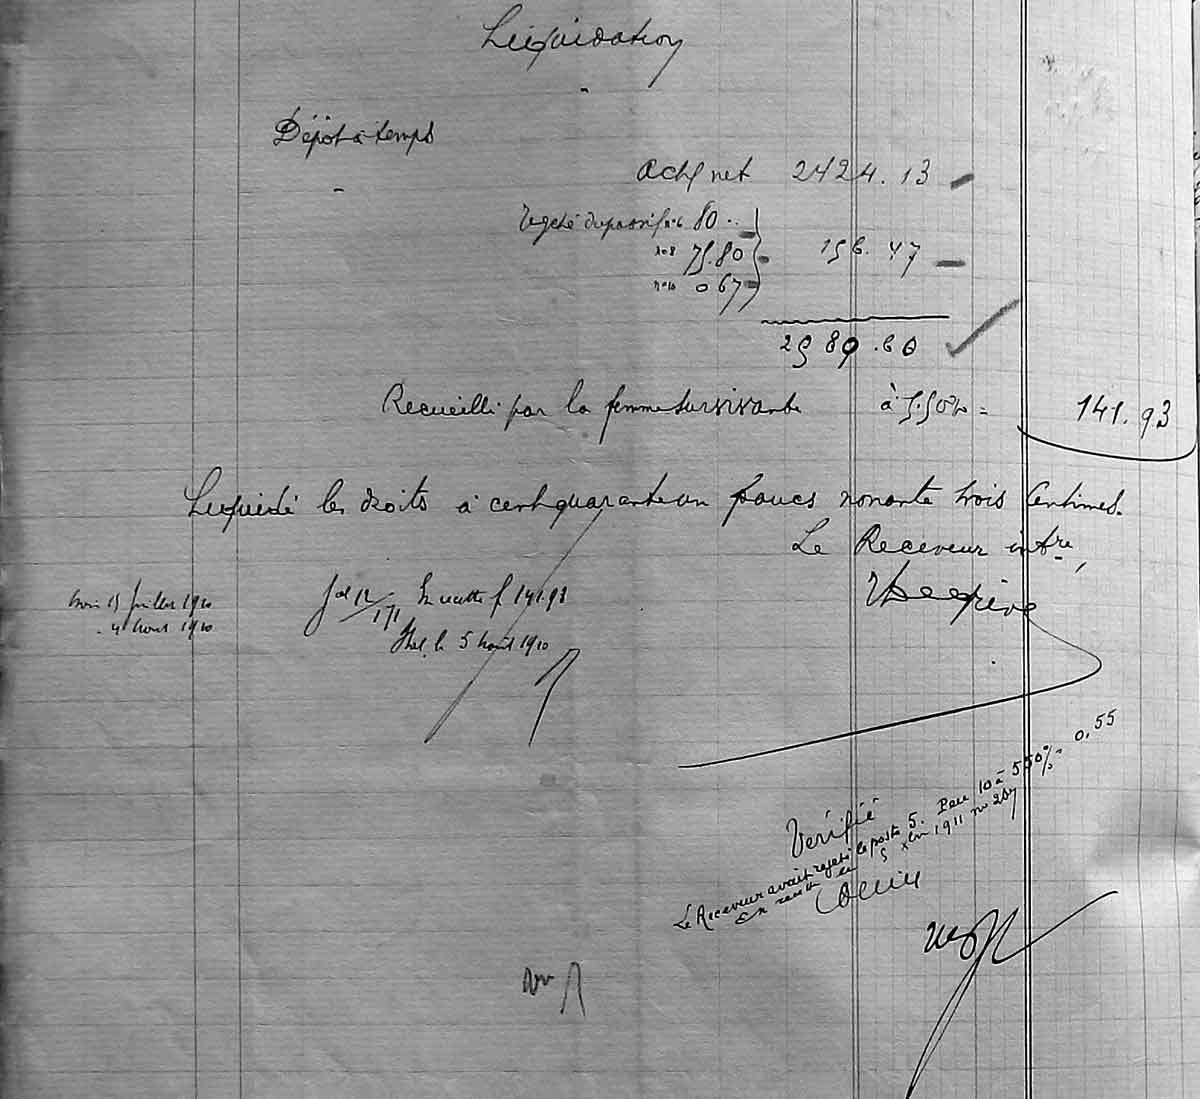 Liquidation
Dépôt à temps
Actif net 2424.13
Rejeté du passif n° 6 80..
n° 8 75.80 156.47
n° 10 0 67
2580.60
Recueilli par la femme survivante à 5.50% = 141.93
Liquidé les droits à cent quarante un francs nonante trois centimes.
Le Receveur intre,
13 Juillet 1910
4 Août 1910
En recette f 141.93
le 5 Août 1910
Vérifié
Le Receveur avait rejeté le poste 5. 10 à 550% = 0.55
en 1911 n° 207